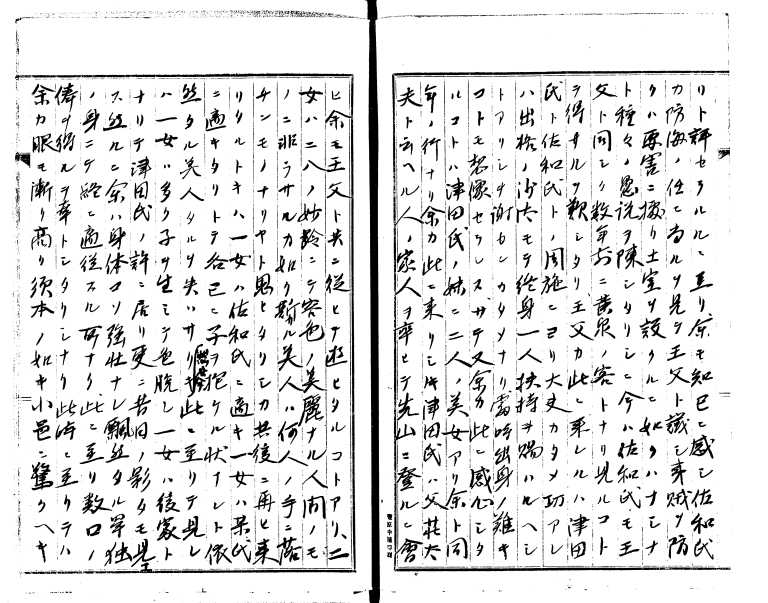 リト評セラルルニ至リ余モ知己ニ感シ佐和氏
カ防海ノ任ニ当ルヲ見テ王父ト議シ事賊ヲ防
クハ要害ニ拠リ土室ヲ設クルニ如クハナシナ
ト種々ノ愚説ヲ陳シタリシニ今ハ佐和氏モ王
父ト同シク数年前ニ黄泉ノ客トナリ見ルコト
ヲ得サルヲ歎シタリ王父カ此ニ来レルハ津田
氏ト佐和氏トノ周施ニヨリ大史カタメ功アレ
ハ出格ノ沙汰モテ終身一人扶持ヲ賜ハルヘシ
トアリシヲ謝センカタメナリ當時出身ノ難キ
コトモ想像セラレヌサテ又余カ此ニ感心シタ
ルコトハ津田氏ノ妹ニ二人ノ美女アリ余ト同
年ノ行ナリ余カ此ニ来リシトキ津田氏ハ父荘太
夫ト云ヘル人ノ家人ヲ率ヒテ先山ニ登ルニ會
ヒ余モ王父ト共ニ従ヒテ遊ヒタルコトアリ、二
女ハ二八ノ妙齢ニテ容色ノ美麗ナル人間ノモ
ノニ非ラサルカ如ク斯カル美人ハ何人ノ手ニ落
チンモノナリヤト思ヒタリシカ其後ニ再ヒ来
リタルトキハ一女ハ佐和氏ニ適キ一女ハ某氏
ニ適キタリトテ各已ニ子ヲ抱ケル状ナレト依
然タル美人タルヲ失ハサリキ此ニ至リテ見レ
ハ一女ハ多ク子ヲ生ミテ色脱シ一女ハ後家ト
ナリテ津田氏ノ許ニ居リ更ニ昔日ノ影タモ見エ
ス然ルニ余ハ身体コソ強壮ナレ飄然タル単独
ノ身ニテ終ニ適従スル所ナク此ニ至リ数口ノ
儔ヲ得ルヲ幸トシタリシナリ此時ニ至リテハ
余カ眼モ漸ク高ク須本ノ如キ小邑ニ驚クヘキ